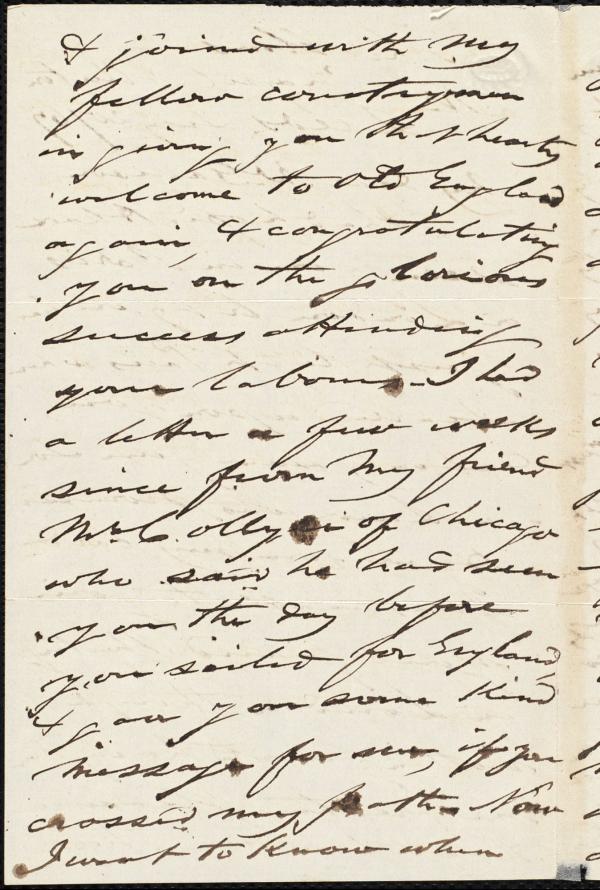 & joined with my
fellow countrymen
in giving you that hearty
welcome to Old England
again, & congratulating
you on the glorious
success attending
your labours. I had
a letter a few weeks
since from my friend
Mr of Chicago
who said he had seen
you the day before
you sailed for England,
& gave you some kind
message for me, if you
crossed my path. Now
I want to know when